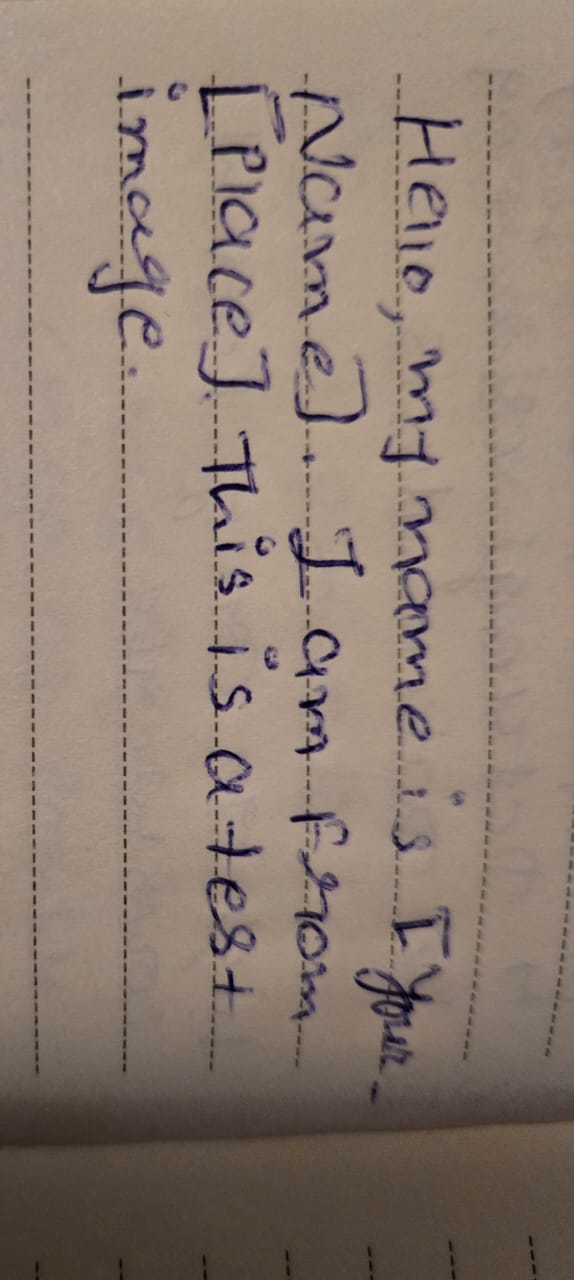 Hello, my name is [Your-
Name]. I am from
[Place]. This is a test
image.